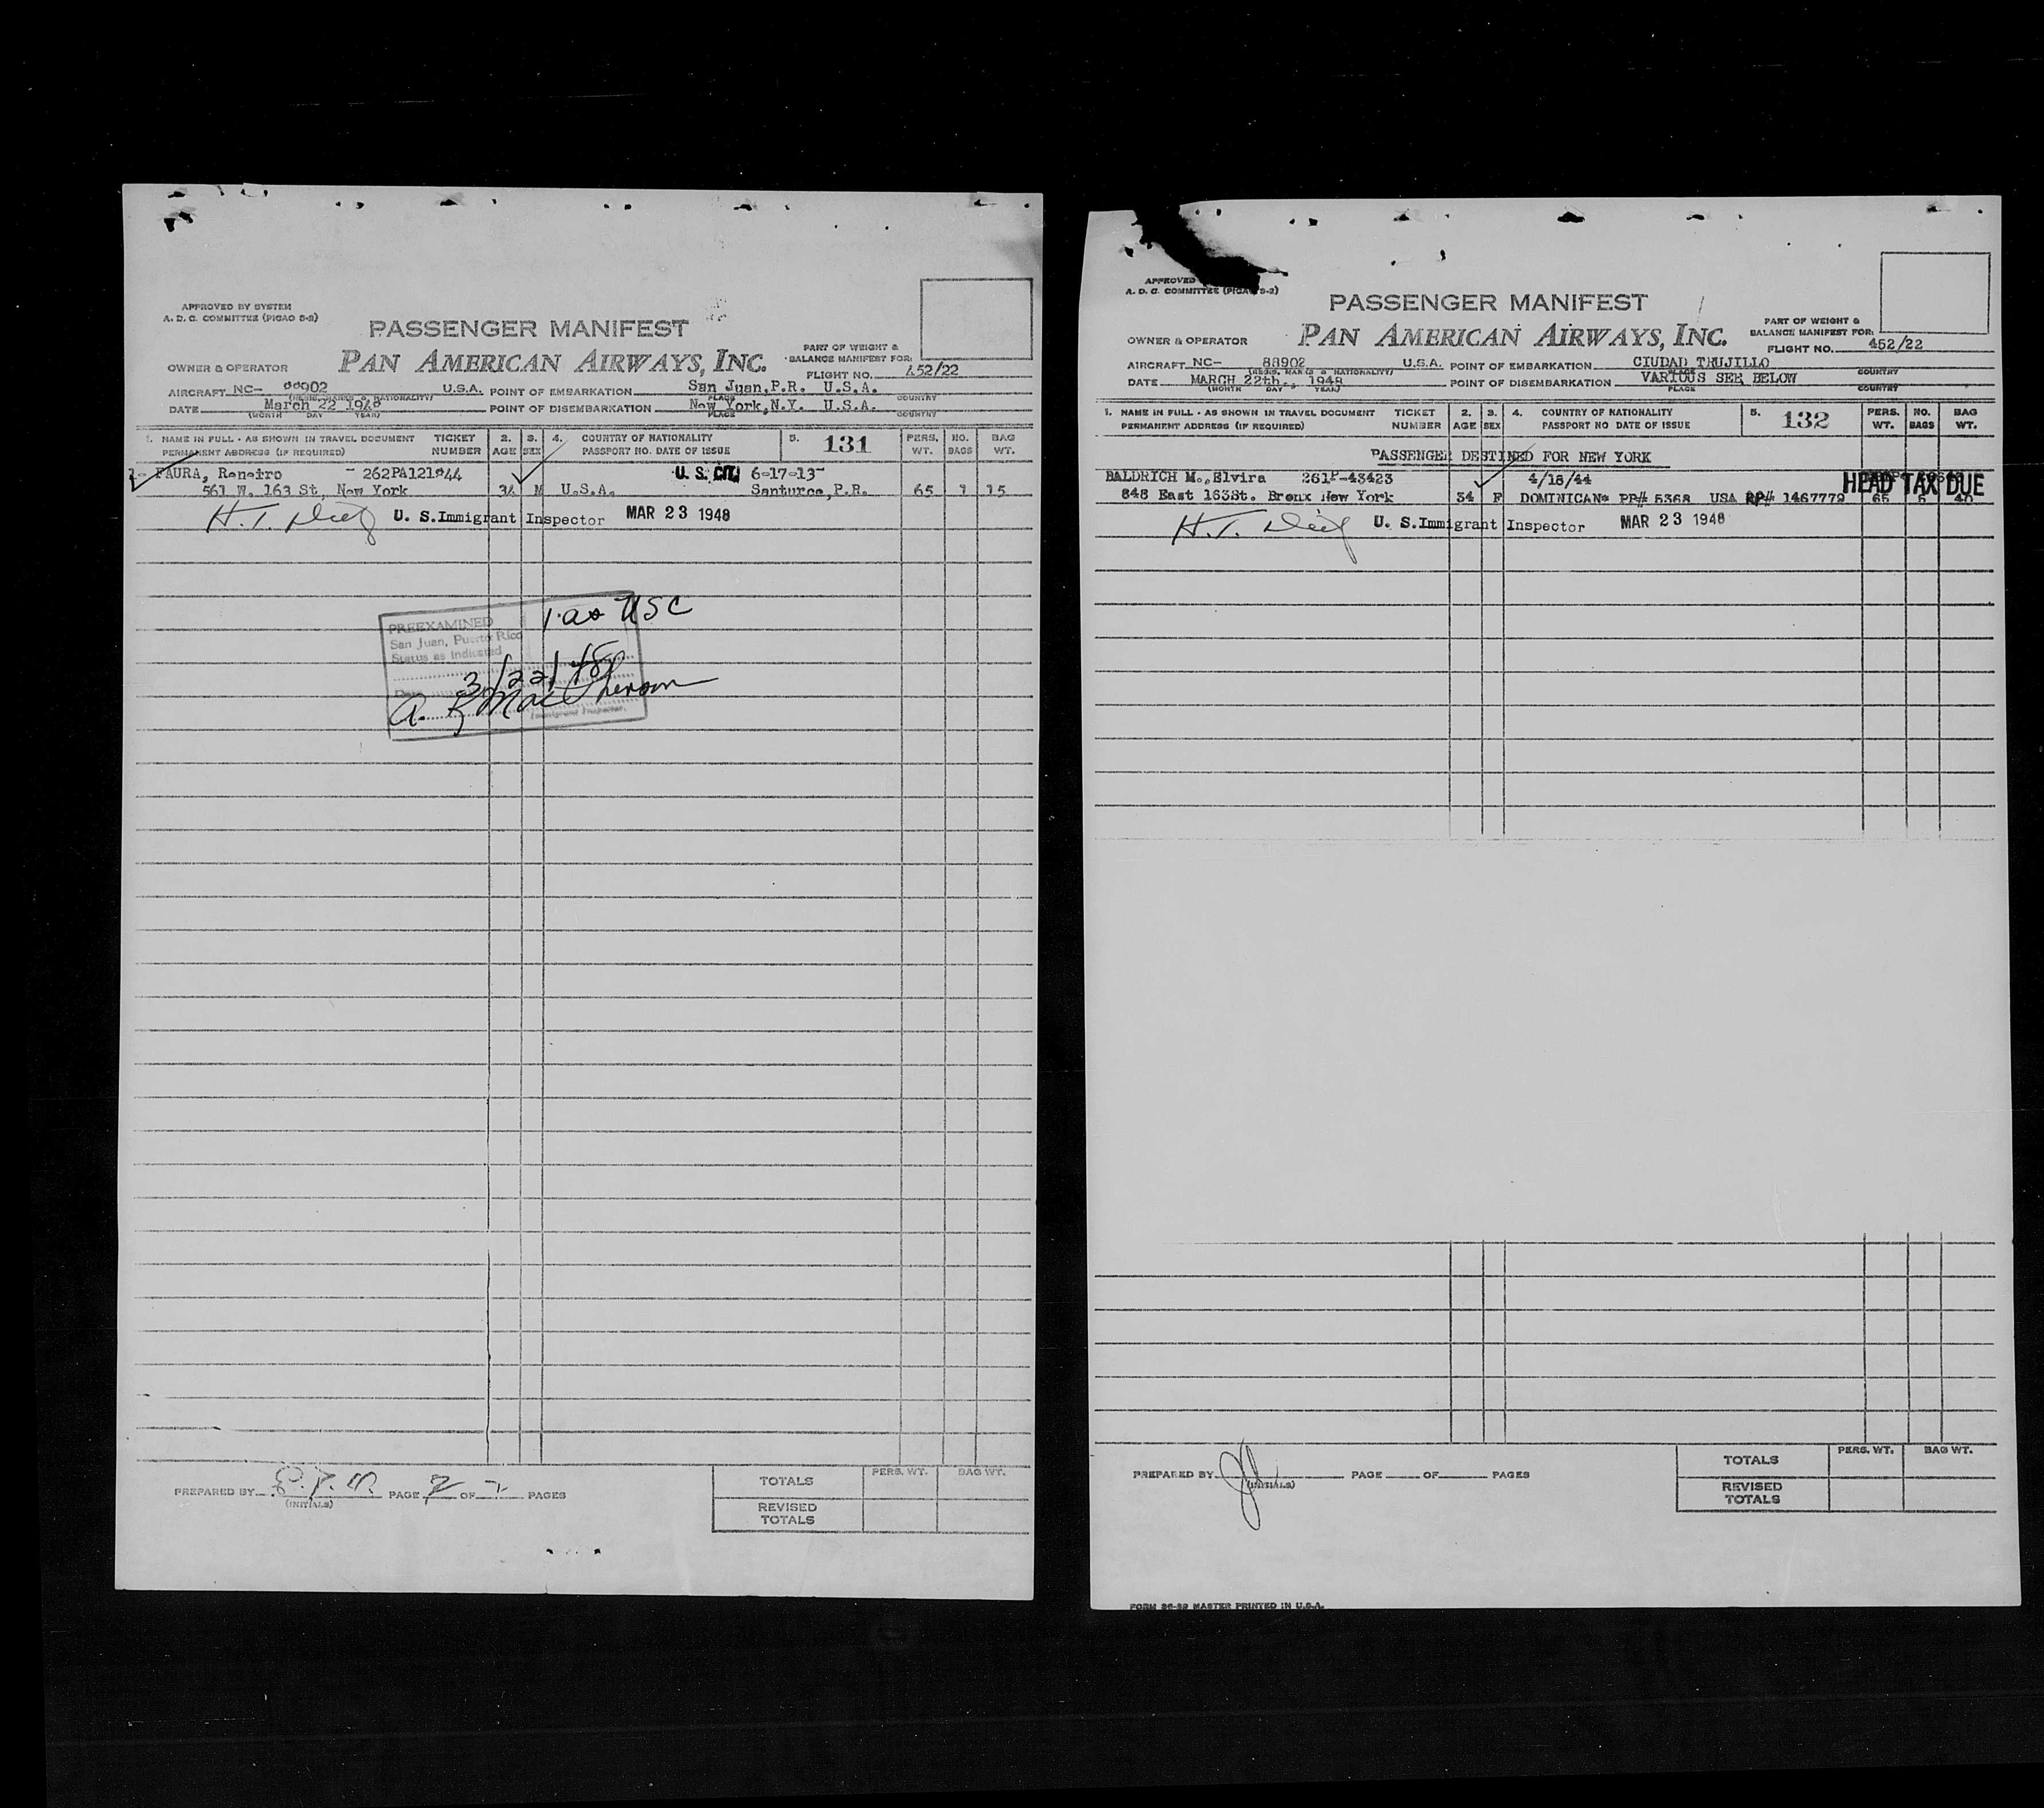 APPROVED BY SYSTEM
A. D. C. COMMITTEE (PICAO S-2)
PASSENGER MANIFEST
OWNER & OPERATOR PAN AMERICAN AIRWAYS, INC.
PART OF WEIGHT &
BALANCE MANIFEST FOR:
FLIGHT NO. 452/22
AIRCRAFT NC- 88902 U.S.A. POINT OF EMBARKATION San Juan,P.R. U.S.A.
(REGIS. MARKS & NATIONALITY) PLACE COUNTRY
DATE March 22 1948 POINT OF DISEMBARKATION New York,N.Y. U.S.A.
(MONTH DAY YEAR) PLACE COUNTRY
1. NAME IN FULL - AS SHOWN IN TRAVEL DOCUMENT TICKET 2. 3. 4. COUNTRY OF NATIONALITY 5. 131 PERS. NO. BAG
PERMANENT ADDRESS (IF REQUIRED) NUMBER AGE SEX PASSPORT NO. DATE OF ISSUE WT. BAGS WT.
1- FAURA, 262PA121844 U. S. CIT. 6-17-13
561 W. 163 St, New York 34 M U.S.A. Santurce,P.R. 65 1 15
U. S. Immigrant Inspector MAR 23 1948
1 as USC
PREEXAMINED
San Juan, Puerto Rico
Status as indicated
Date 3/22/48
Immigrant Inspector.
PREPARED BY PAGE 2 OF PAGES
(INITIALS)
PERS. WT. BAG WT.
TOTALS
REVISED
TOTALS
APPROVED
A. D. C. COMMITTEE (PICAO S-2)
PASSENGER MANIFEST
OWNER & OPERATOR PAN AMERICAN AIRWAYS, INC.
PART OF WEIGHT &
BALANCE MANIFEST FOR:
FLIGHT NO. 452/22
AIRCRAFT NC- 88902 U.S.A. POINT OF EMBARKATION CIUDAD TRUJILLO
(REGIS. MARKS & NATIONALITY) PLACE COUNTRY
DATE MARCH 22th., 1948 POINT OF DISEMBARKATION VARIOUS SEE BELOW
(MONTH DAY YEAR) PLACE COUNTRY
1. NAME IN FULL - AS SHOWN IN TRAVEL DOCUMENT TICKET 2. 3. 4. COUNTRY OF NATIONALITY 5. 132 PERS. NO. BAG
PERMANENT ADDRESS (IF REQUIRED) NUMBER AGE SEX PASSPORT NO DATE OF ISSUE WT. BAGS WT.
PASSENGER DESTINED FOR NEW YORK
BALDRICH M., Elvira 261P-43423 4/18/44 HEAD TAX DUE
848 East 163St. Bronx New York 34 F DOMINICAN* PP# 5368 USA RP# 1467779 65 40
U. S. Immigrant Inspector MAR 23 1948
PREPARED BY PAGE OF PAGES
(INITIALS)
PERS. WT. BAG WT.
TOTALS
REVISED
TOTALS
FORM 26-32 MASTER PRINTED IN U.S.A.